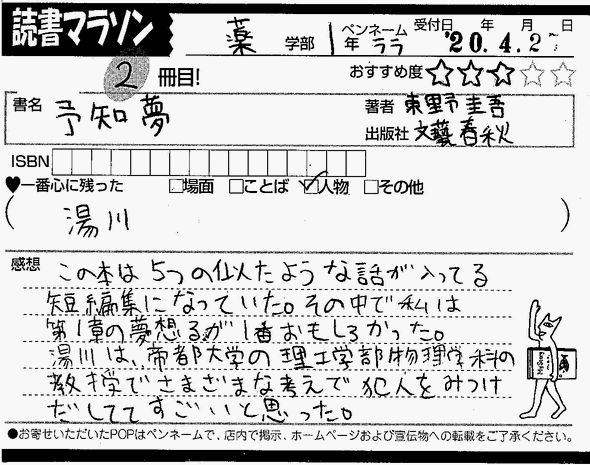 読書マラソン
薬 学部 1年 ペンネーム ララ 受付日 年 月 日 '20.4.2
2 冊目! おすすめ度 ★★★☆☆
書名 予知夢 著者 東野圭吾
出版社 文藝春秋
ISBN
♥一番心に残った □場面 □ことば ☑人物 □その他
( 湯川 )
感想 この本は5つの似たような話が入ってる
短編集になっていた。その中で私は
第1章の夢想るが1番おもしろかった。
湯川は、帝都大学の理工学部物理学科の
教授でさまざまな考えで犯人をみつけ
だしててすごいと思った。
●お寄せいただいたPOPはペンネームで、店内で掲示、ホームページおよび宣伝物への転載をご了承ください。